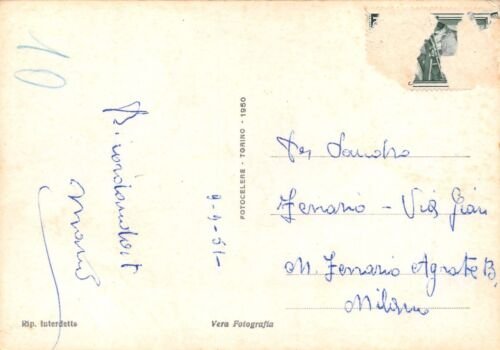 10
Ricordandoti
Mario
9-4-51-
FOTOCELERE - TORINO - 1950
Per Sandro
Ferrario - Via Gian
M. Ferrario Agrate B.
Milano
Rip. Interdetta
Vera Fotografia